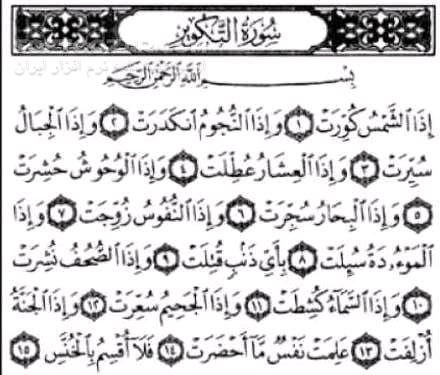 سُورَةُ التَّكْوِيرِ
نرم افزار ایران
بِسْمِ اللَّهِ الرَّحْمَٰنِ الرَّحِيمِ
إِذَا الشَّمْسُ كُوِّرَتْ ١ وَإِذَا النُّجُومُ انكَدَرَتْ ٢ وَإِذَا الْجِبَالُ
سُيِّرَتْ ٣ وَإِذَا الْعِشَارُ عُطِّلَتْ ٤ وَإِذَا الْوُحُوشُ حُشِرَتْ
٥ وَإِذَا الْبِحَارُ سُجِّرَتْ ٦ وَإِذَا النُّفُوسُ زُوِّجَتْ ٧ وَإِذَا
الْمَوْءُۥدَةُ سُئِلَتْ ٨ بِأَيِّ ذَنبٍ قُتِلَتْ ٩ وَإِذَا الصُّحُفُ نُشِرَتْ
١٠ وَإِذَا السَّمَاءُ كُشِطَتْ ١١ وَإِذَا الْجَحِيمُ سُعِّرَتْ ١٢ وَإِذَا الْجَنَّةُ
أُزْلِفَتْ ١٣ عَلِمَتْ نَفْسٌ مَّا أَحْضَرَتْ ١٤ فَلَا أُقْسِمُ بِالْخُنَّسِ ١٥